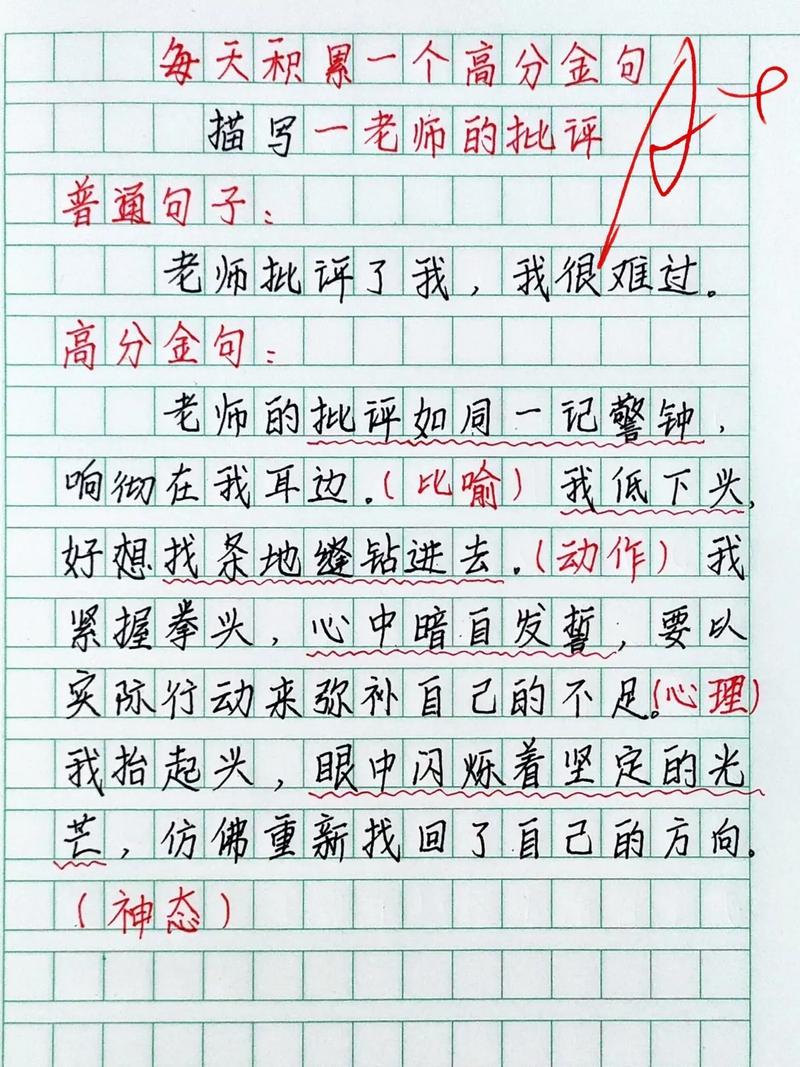 每天积累一个高分金句
A+
描写一老师的批评
普通句子：
老师批评了我，我很难过。
高分金句：
老师的批评如同一记警钟，
响彻在我耳边。（比喻）我低下头，
好想找条地缝钻进去。（动作）我
紧握拳头，心中暗自发誓，要以
实际行动来弥补自己的不足。（心理）
我抬起头，眼中闪烁着坚定的光
芒，仿佛重新找回了自己的方向。
（神态）